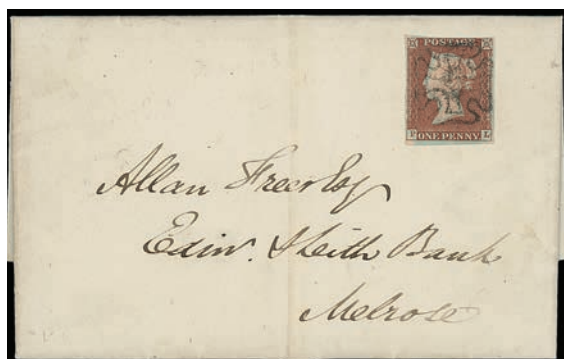 POSTAGE
ONE PENNY
Allan Freer Esq
Edinr. & Leith Bank
Melrose